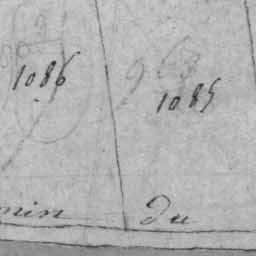 963
1086
1085
min du